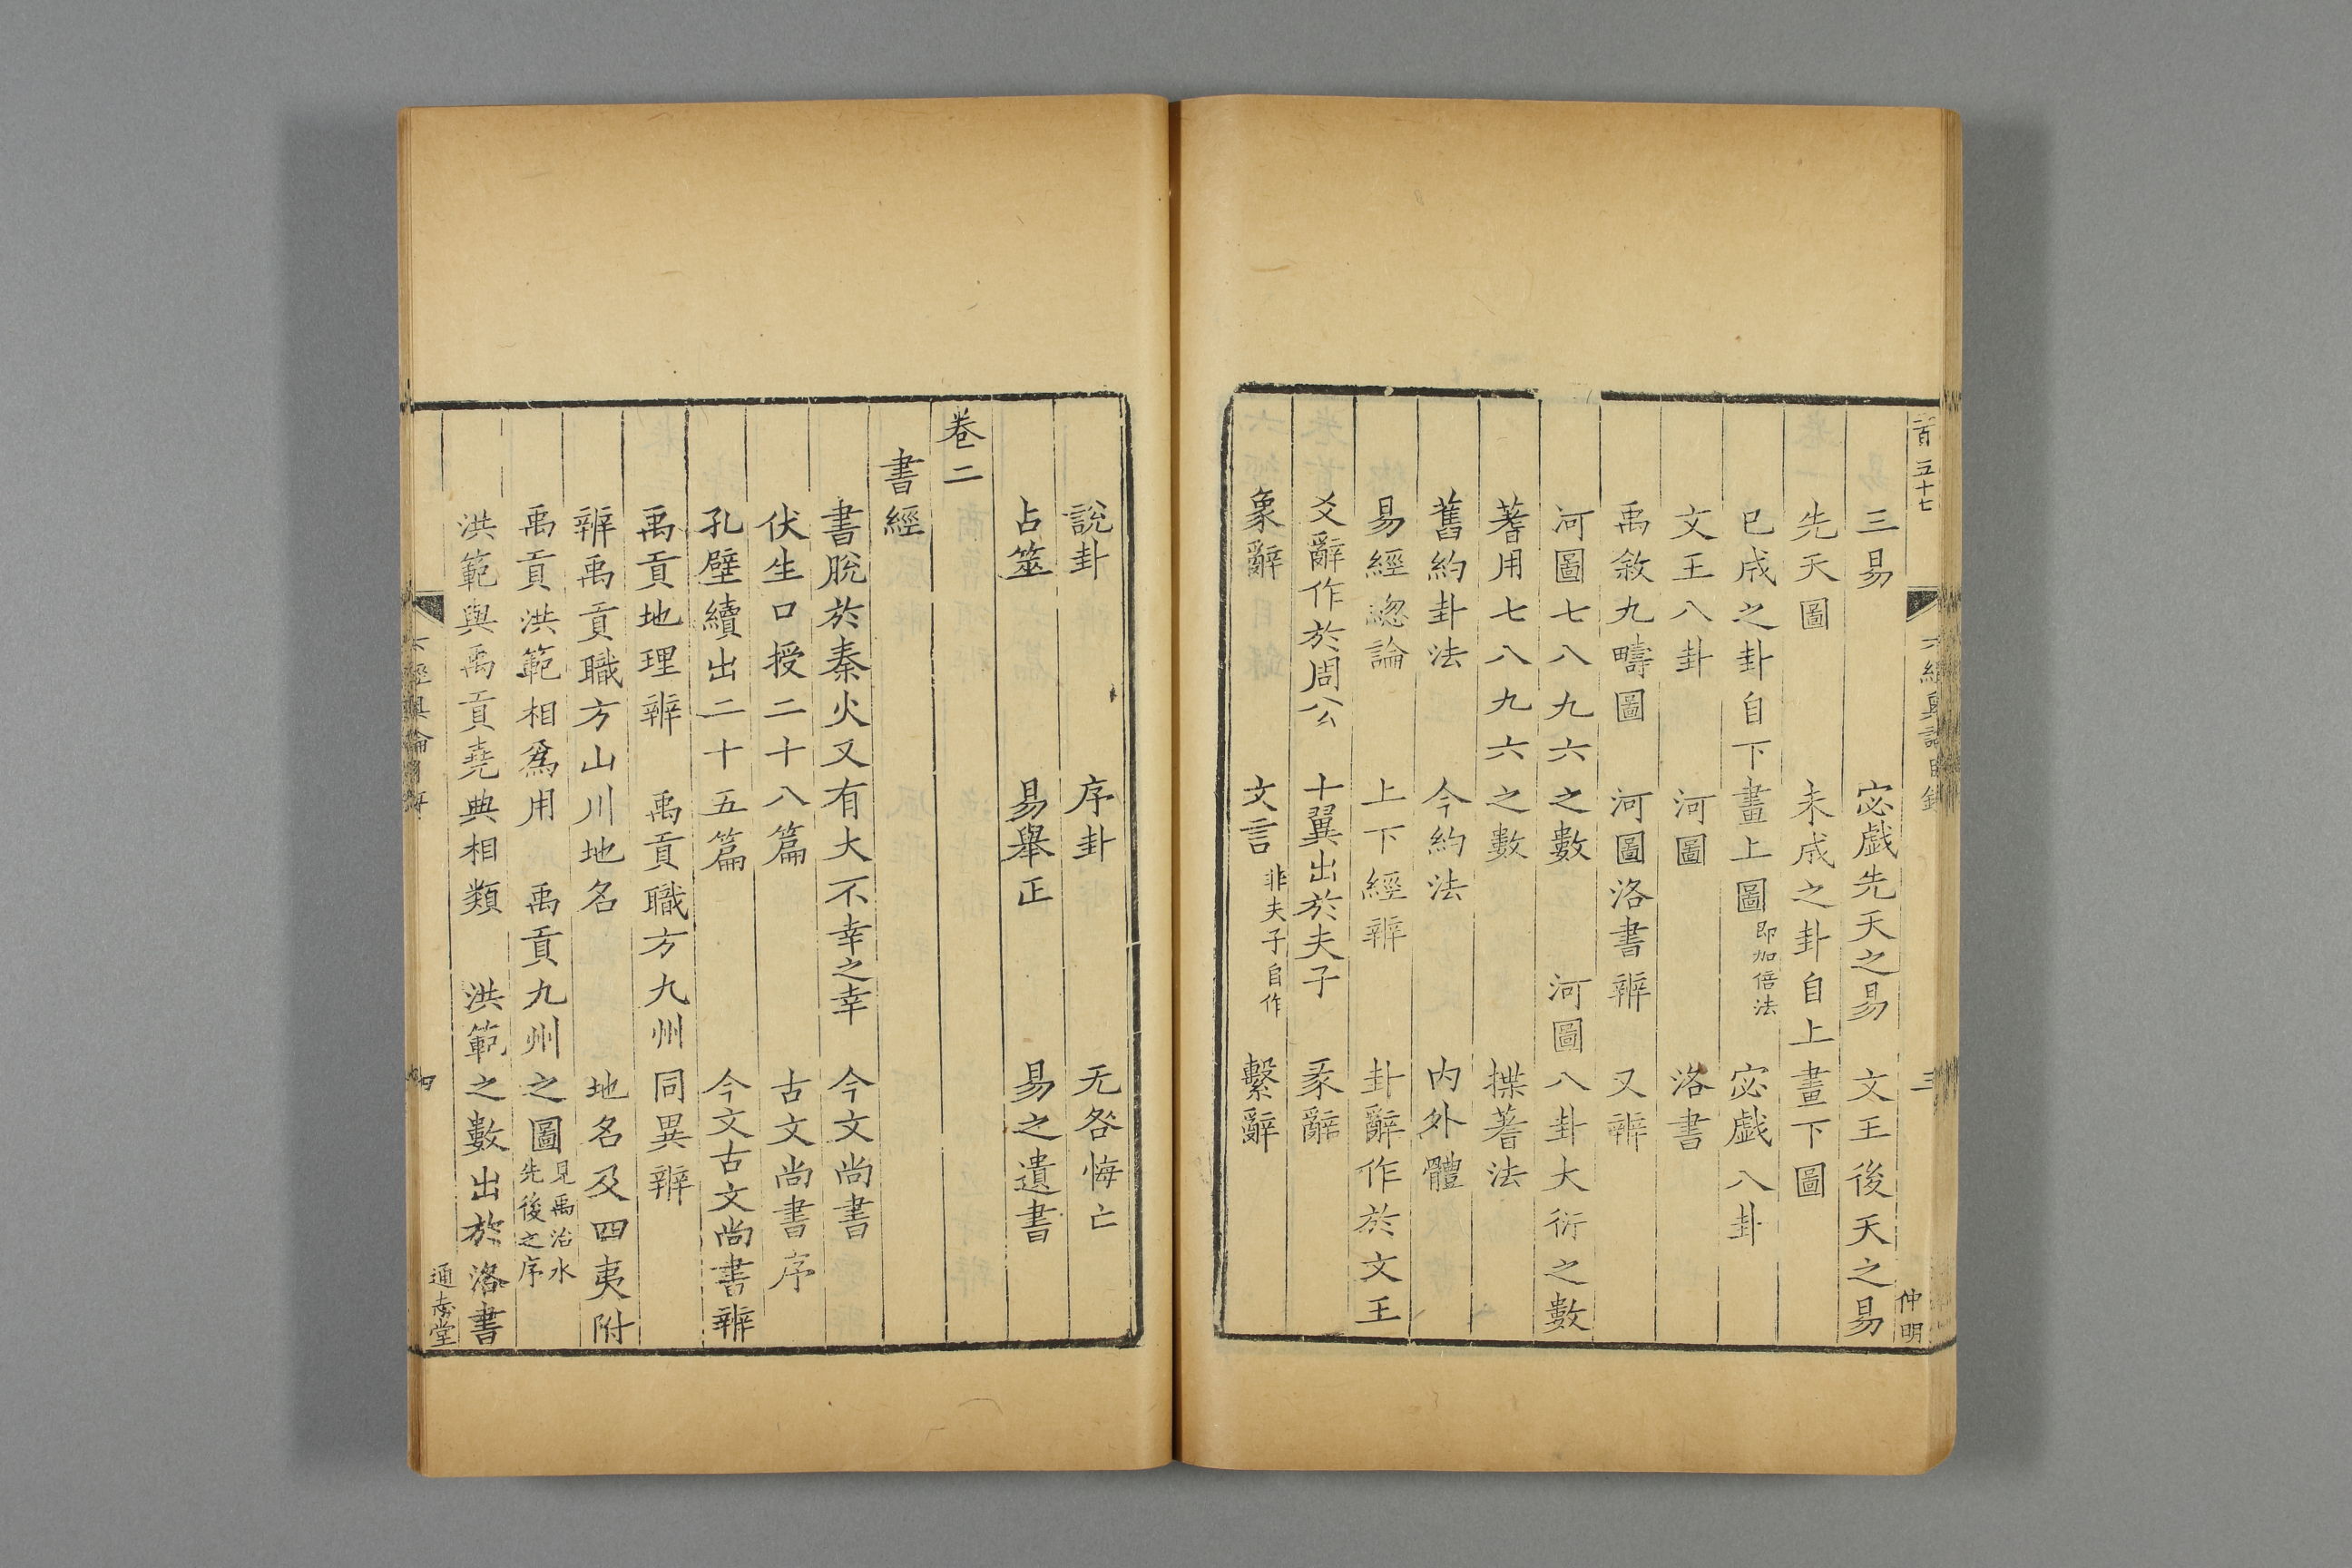 三易 宓戯先天之易 文王後天之易
先天圖 未成之卦自上畫下圖
已成之卦自下畫上圖 即加倍法 宓戯八卦
文王八卦 河圖 洛書
禹敘九疇圖 河圖洛書辨 又辨
河圖七八九六之數 河圖八卦大衍之數
蓍用七八九六之數 揲蓍法
舊約卦法 今約法 内外體
易經緫論 上下經辨 卦辭作於文王
爻辭作於周公 十翼出於夫子 彖辭
象辭 文言 非夫子自作 繫辭
說卦 序卦 无咎悔亡
占筮 易舉正 易之遺書
卷二
書經
書脫於秦火又有大不幸之幸 今文尚書
伏生口授二十八篇 古文尚書序
孔壁續出二十五篇 今文古文尚書辨
禹貢地理辨 禹貢職方九州同異辨
辨禹貢職方山川地名 地名及四夷附
禹貢洪範相爲用 禹貢九州之圖 見禹治水先後之序
洪範與禹貢堯典相類 洪範之數出於洛書
通志堂
仲明